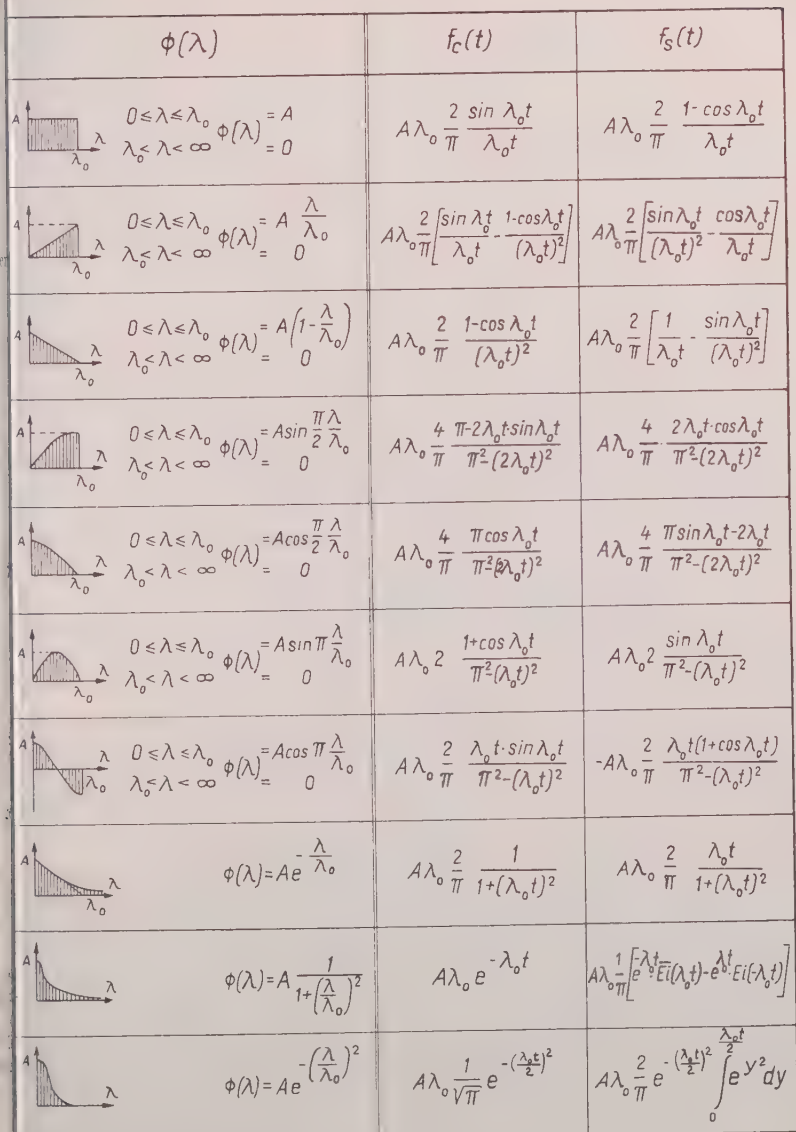 ϕ(λ) f_c(t) f_s(t)
A λ λ₀ 0≤λ≤λ₀ ϕ(λ) = A λ₀<λ<∞ = 0 Aλ₀ 2/π sin λ₀t / λ₀t Aλ₀ 2/π 1-cos λ₀t / λ₀t
A λ λ₀ 0≤λ≤λ₀ ϕ(λ) = A λ/λ₀ λ₀<λ<∞ = 0 Aλ₀ 2/π [sin λ₀t / λ₀t - 1-cosλ₀t / (λ₀t)²] Aλ₀ 2/π [sinλ₀t / (λ₀t)² - cosλ₀t / λ₀t]
A λ λ₀ 0≤λ≤λ₀ ϕ(λ) = A(1-λ/λ₀) λ₀<λ<∞ = 0 Aλ₀ 2/π 1-cos λ₀t / (λ₀t)² Aλ₀ 2/π [1/λ₀t - sinλ₀t / (λ₀t)²]
A λ λ₀ 0≤λ≤λ₀ ϕ(λ) = Asin π/2 λ/λ₀ λ₀<λ<∞ = 0 Aλ₀ 4/π π-2λ₀t·sinλ₀t / π²-(2λ₀t)² Aλ₀ 4/π · 2λ₀t·cosλ₀t / π²-(2λ₀t)²
A λ λ₀ 0≤λ≤λ₀ ϕ(λ) = Acos π/2 λ/λ₀ λ₀<λ<∞ = 0 Aλ₀ 4/π πcos λ₀t / π²-(2λ₀t)² Aλ₀ 4/π πsinλ₀t-2λ₀t / π²-(2λ₀t)²
A λ λ₀ 0≤λ≤λ₀ ϕ(λ) = Asinπ λ/λ₀ λ₀<λ<∞ = 0 Aλ₀2 1+cos λ₀t / π²-(λ₀t)² Aλ₀2 sin λ₀t / π²-(λ₀t)²
A λ λ₀ 0≤λ≤λ₀ ϕ(λ) = Acos π λ/λ₀ λ₀<λ<∞ = 0 Aλ₀ 2/π λ₀t·sinλ₀t / π²-(λ₀t)² -Aλ₀ 2/π λ₀t(1+cosλ₀t) / π²-(λ₀t)²
A λ λ₀ ϕ(λ)=Ae^(-λ/λ₀) Aλ₀ 2/π 1 / 1+(λ₀t)² Aλ₀ 2/π λ₀t / 1+(λ₀t)²
A λ ϕ(λ)=A 1 / 1+(λ/λ₀)² Aλ₀ e^(-λ₀t) Aλ₀ 1/π [e^(-λ₀t)·Ēi(λ₀t)-e^(λ₀t)·Ei(-λ₀t)]
A λ ϕ(λ)=Ae^(-(λ/λ₀)²) Aλ₀ 1/√π e^(-(λ₀t/2)²) Aλ₀ 2/π e^(-(λ₀t/2)²) ∫₀^(λ₀t/2) e^(y²)dy